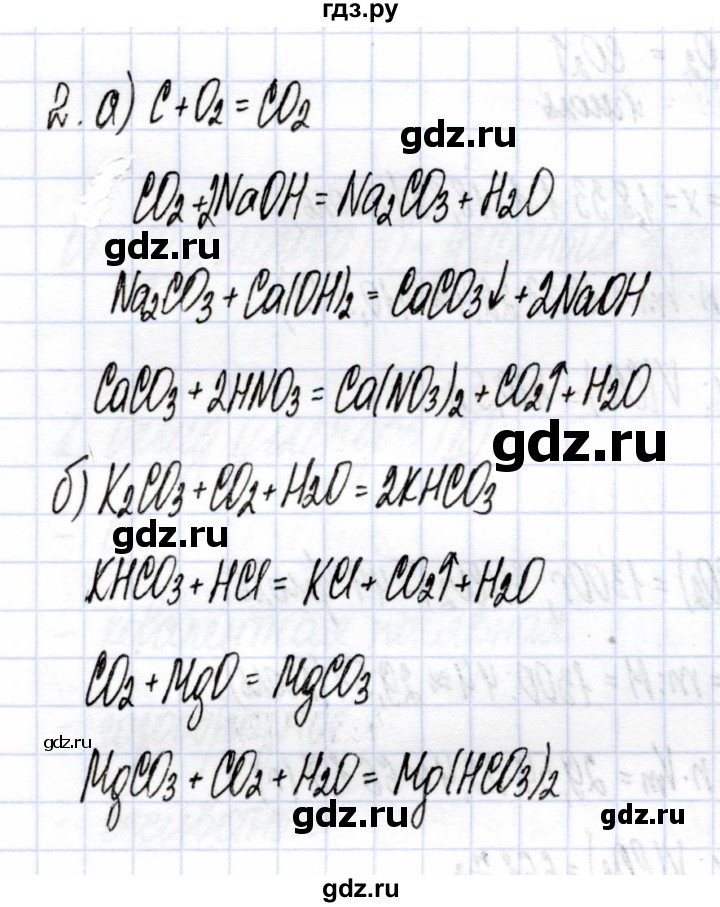 гдз.ру
2. а) C + O₂ = CO₂
gdz.ru
CO₂ + 2NaOH = Na₂CO₃ + H₂O
gdz.ru
Na₂CO₃ + Ca(OH)₂ = CaCO₃↓ + 2NaOH
CaCO₃ + 2HNO₃ = Ca(NO₃)₂ + CO₂↑ + H₂O
gdz.ru
б) K₂CO₃ + CO₂ + H₂O = 2KHCO₃
gdz.ru
KHCO₃ + HCl = KCl + CO₂↑ + H₂O
CO₂ + MgO = MgCO₃
gdz.ru
MgCO₃ + CO₂ + H₂O = Mg(HCO₃)₂
gdz.ru
gdz.ru
gdz.ru